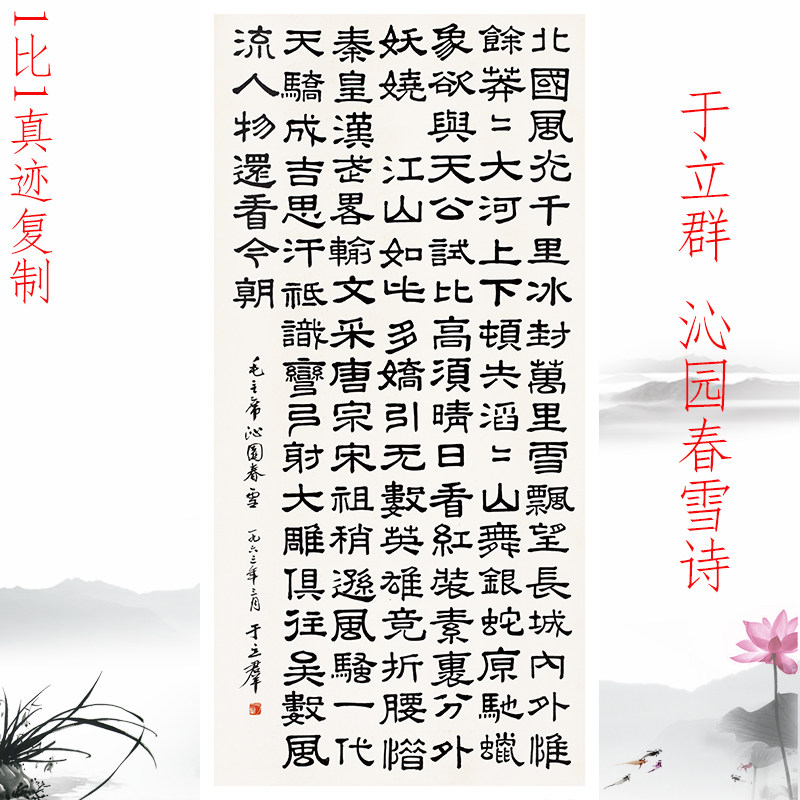 于立群 沁园春雪诗
北國風光千里冰封萬里雪飄望長城內外惟
餘莽〻大河上下頓失滔〻山舞銀蛇原馳蠟
象欲與天公試比高須晴日看紅裝素裹分外
妖嬈 江山如此多嬌引无數英雄竞折腰惜
秦皇漢武畧輸文采唐宗宋祖稍遜風騷一代
天驕成吉思汗祗識彎弓射大雕俱往矣數風
流人物還看今朝
毛主席沁園春雪 一九六三年三月 于立群
1比1真迹复制